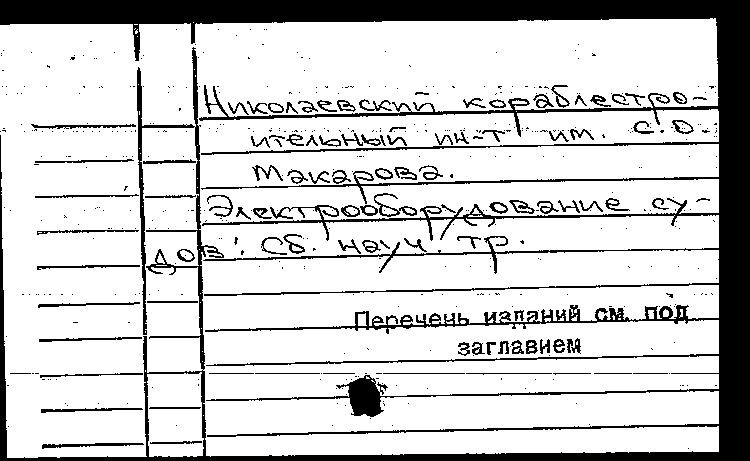 Николаевский кораблестро-
ительный ин-т им. С.О.
Макарова.
Электрооборудование су-
дов: Сб. науч. тр.
Перечень изданий см. под
заглавием